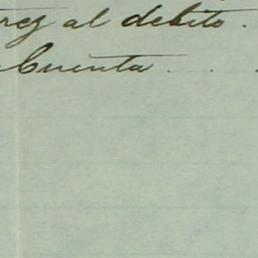 al debito.
Cuenta . . .